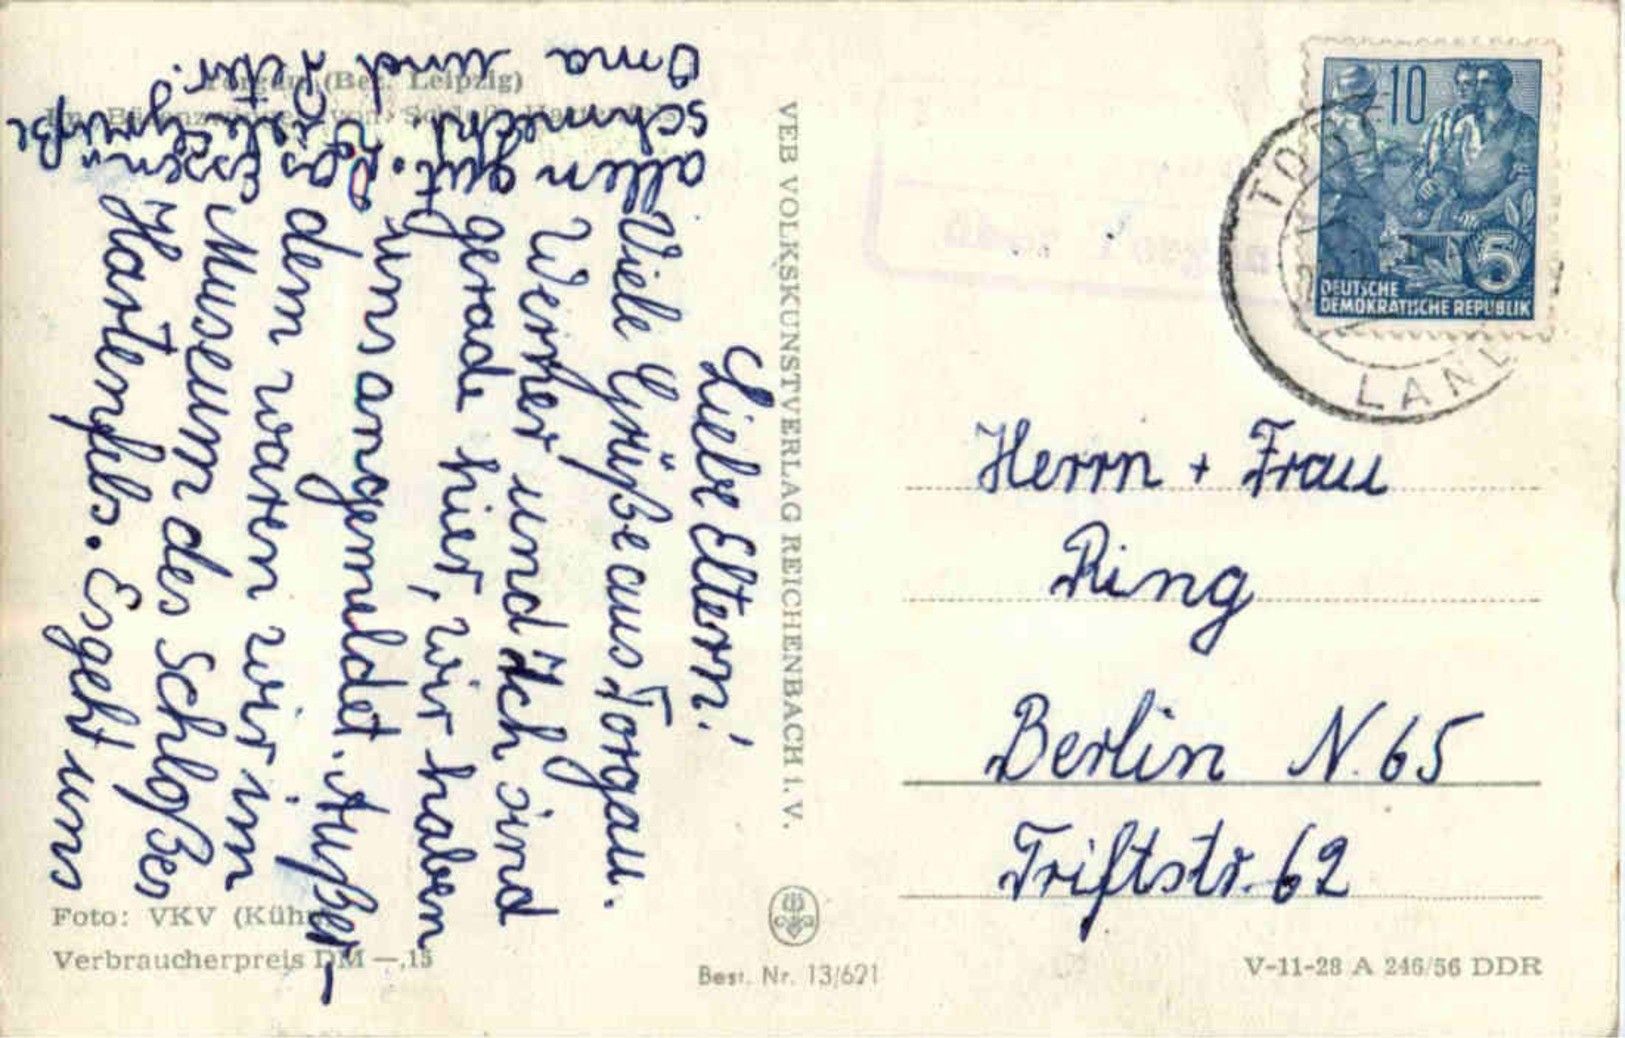 Torgau (Bez. Leipzig)
Liebe Eltern!
Viele Grüße aus Torgau.
Werner und Ich sind
gerade hier, wir haben
uns angemeldet. Außer-
dem waren wir im
Museum des Schloßes
Hartenfels. Es geht uns
allen gut. Das Essen
schmeckt. Viele Grüße
Oma und Peter.
Foto: VKV (Kühn)
Verbraucherpreis DM —,15
VEB VOLKSKUNSTVERLAG REICHENBACH i. V.
Best. Nr. 13/621
über Torgau
10
5
DEUTSCHE
DEMOKRATISCHE REPUBLIK
LAND
Herrn + Frau
Ring
Berlin N. 65
Triftstr. 62
V-11-28 A 246/56 DDR